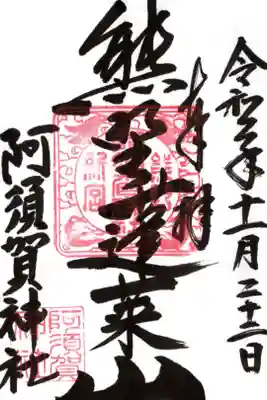 令和二年十一月二十二日
奉拝
熊野蓬莱山
阿須賀神社
阿須賀
神社